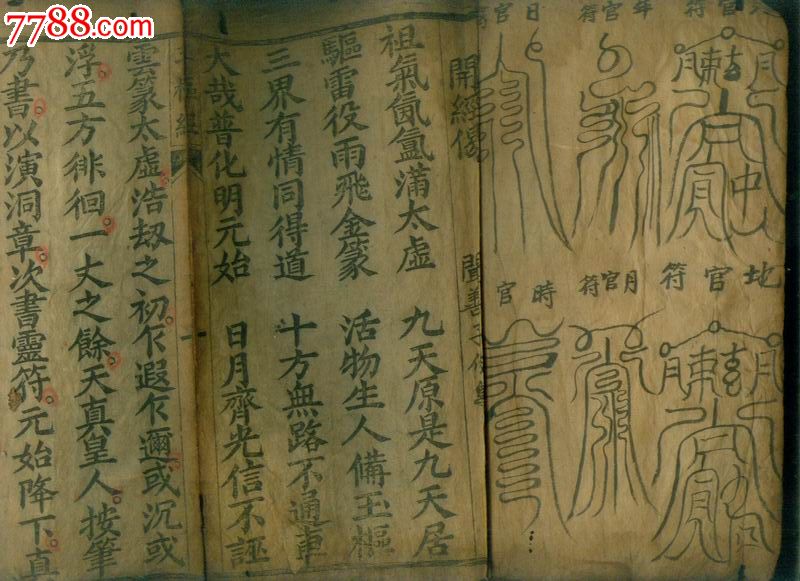 官符
年官符
日官符
地官符
月官符
時官
開經偈
祖氣氤氳滿太虛　九天原是九天居
驅雷役雨飛金篆　活物生人備玉樞
三界有情同得道　十方無路不通車
大哉普化明元始　日月齊光信不誣
樞經
一
雲篆太虛浩刼之初乍遐乍邇或沉或
浮五方徘徊一丈之餘天真皇人按筆
乃書以演洞章次書靈符元始降下真
7788.com